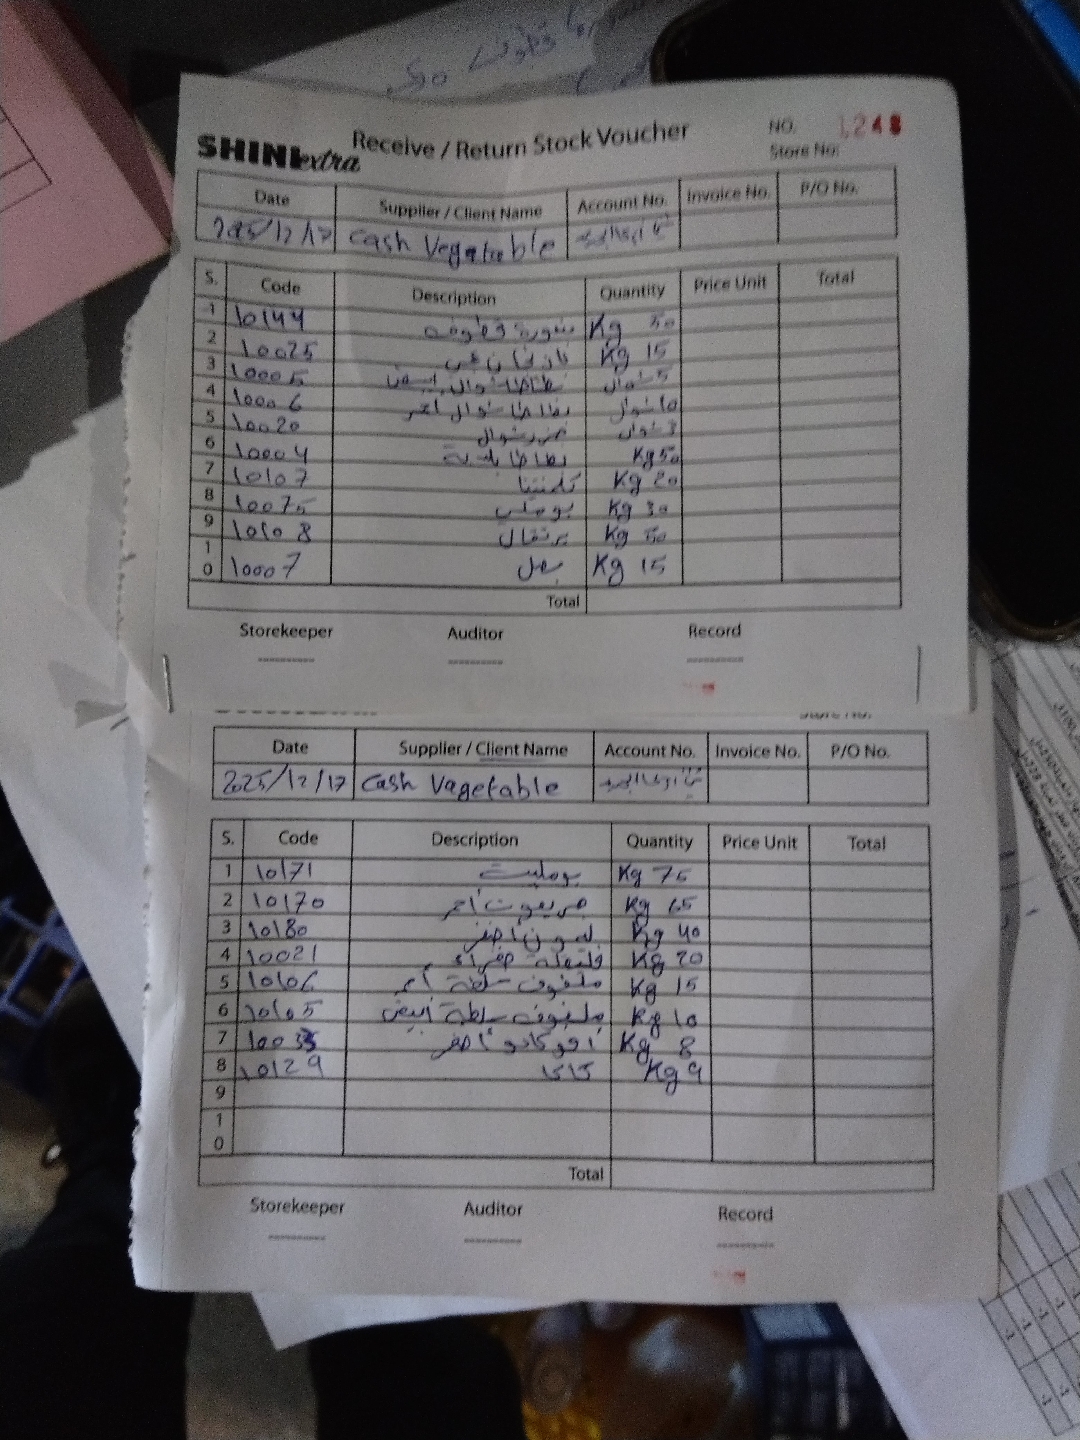 SHINI extra
Receive / Return Stock Voucher
NO. 1248
Store No:
Date Supplier / Client Name Account No. Invoice No. P/O No.
2025/12/17 Cash Vegatable
S. Code Description Quantity Price Unit Total
1 10144 Kg 50
2 10025 Kg 15
3 10005 بطاطا شوال ابيض 5 شوال
4 10006 بطاطا شوال احمر 10 شوال
5 10020 جزر شوال 3 شوال
6 10004 بطاطا بلدية Kg 50
7 10107 كلمنتينا Kg 20
8 10075 بوملي Kg 30
9 10108 برتقال Kg 50
10 10007 بصل Kg 15
Total
Storekeeper Auditor Record
Date Supplier / Client Name Account No. Invoice No. P/O No.
2025/12/17 Cash Vagetable
S. Code Description Quantity Price Unit Total
1 10171 Kg 75
2 10170 جريفوت احمر Kg 65
3 10180 ليمون اصفر Kg 40
4 10021 فليفلة صفراء Kg 20
5 10106 ملفوف سلطة أحمر Kg 15
6 10105 ملفوف سلطة أبيض Kg 10
7 10033 افوكادو أخضر Kg 8
8 10129 كاكا Kg 9
9
10
Total
Storekeeper Auditor Record